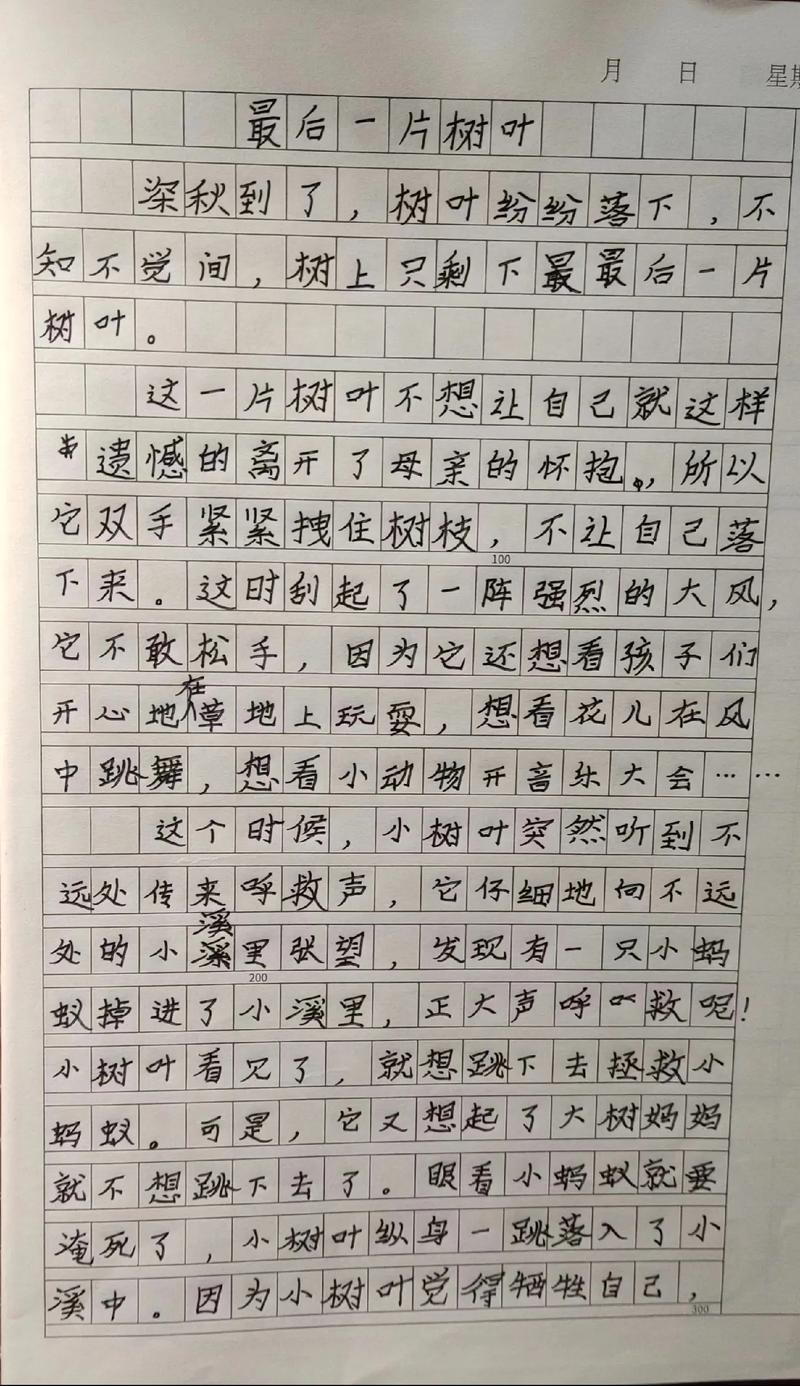 月 日 星期
最后一片树叶
深秋到了，树叶纷纷落下，不
知不觉间，树上只剩下最最后一片
树叶。
这一片树叶不想让自己就这样
遗憾的离开了母亲的怀抱，所以
它双手紧紧拽住树枝，不让自己落
100
下来。这时刮起了一阵强烈的大风，
它不敢松手，因为它还想看孩子们
开心地在草地上玩耍，想看花儿在风
中跳舞，想看小动物开音乐大会……
这个时候，小树叶突然听到不
远处传来呼救声，它仔细地向不远
处的小溪里张望，发现有一只小蚂
200
蚁掉进了小溪里，正大声呼叫救呢！
小树叶看见了，就想跳下去拯救小
蚂蚁。可是，它又想起了大树妈妈
就不想跳下去了。眼看小蚂蚁就要
淹死了，小树叶纵身一跳落入了小
溪中。因为小树叶觉得牺牲自己，
300